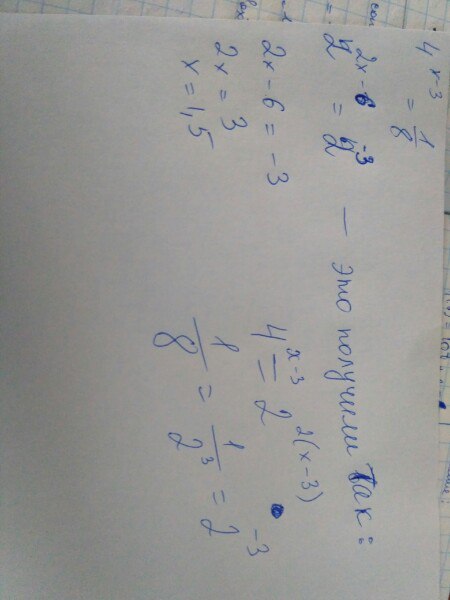 4^{x-3} = 1/8
2^{2x-6} = 2^{-3} — это получили так:
2x - 6 = -3
2x = 3
x = 1,5
4^{x-3} = 2^{2(x-3)}
1/8 = 1/2^3 = 2^{-3}